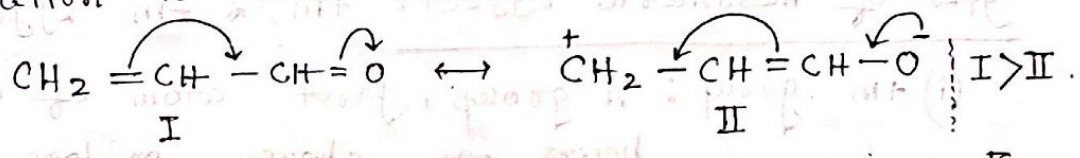 CH₂ = CH - CH = O ⟷ ⁺CH₂ - CH = CH - O⁻ I > II.
I II